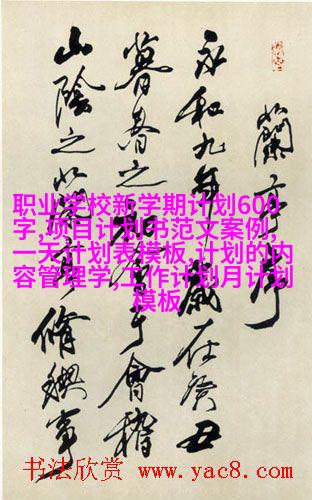 蘭亭序
永和九年歲在癸丑
暮春之初會于會稽
山陰之蘭亭脩禊事
职业学校新学期计划600
字,项目计划书范文案例,
一天计划表模板,计划的内
容管理学,工作计划月计划
模板
书法欣赏 www.yac8.com